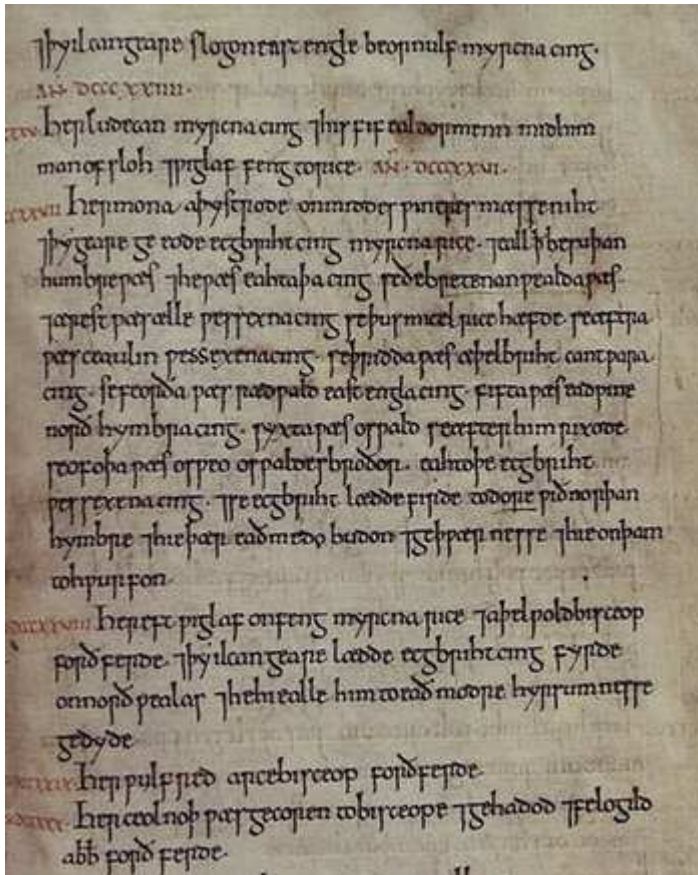 ⁊ þy ilcan geare slogon east engle beornulf myrcna cing.
AN̄. DCCCXXIIII.
Her ludecan myrcna cing ⁊ his fif ealdormenn mid him
man ofsloh ⁊ piglaf feng to rice. AN̄. DCCCXXVI.
Her mona aþystrode on middes pintres mæsseniht
⁊ þy geare geeode ecgbriht cing myrcna rice. ⁊ eall þ̄ besuþan
humbre pæs ⁊ he pæs eahtaþa cing se ðe bretenanpealda pæs.
⁊ ærest pæs ælle pessexena cing se þus micel rice hæfde. se æftra
pæs ceaulin pessexena cing. se þridda pæs æþelbriht cantpara
cing. se feorða pæs rædpald east engla cing. fifta pæs eadpine
norð hymbra cing. syxta pæs ospald se æfter him rixode.
seofoþa pæs ospeo ospaldes broðor. eahtoþe ecgbriht
pessexena cing. ⁊ se ecgbriht lædde firde to dore pið norþan
hymbre ⁊ hie þær eadmedo budon ⁊ geþpærnesse ⁊ hie on þam
tohpurfon.
Her eft piglaf onfeng myrcna rice ⁊ aþelpold bisceop
forð ferde. ⁊ þy ilcan geare lædde ecgbriht cing fyrde
on norð pealas ⁊ he hi ealle him to eadmodre hyrsumnesse
gedyde.
Her pulfred arcebisceop forð ferde.
Her ceolnoþ pæs gecoren to bisceope ⁊ gehadod ⁊ felogild
abb̄ forð ferde.